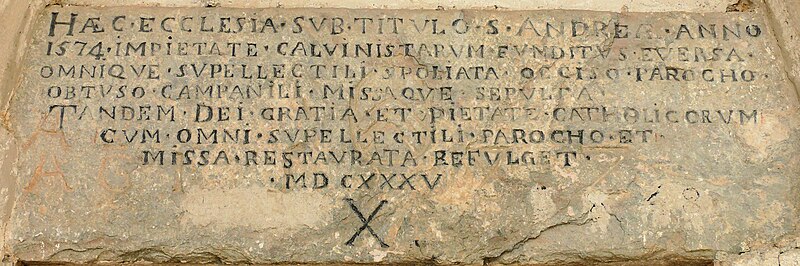 HÆC·ECCLESIA·SUB·TITULO·S·ANDREÆ·ANNO
1574·IMPIETATE·CALVINISTARVM·FUNDITVS·EVERSA·
OMNIQVE·SUPELLECTILI·SPOLIATA·OCCISO·PAROCHO·
OBTUSO·CAMPANILI·MISSAQUE·SEPULTA
TANDEM·DEI·GRATIA·ET·PIETATE·CATHOLICORUM
CUM·OMNI·SUPELLECTILI·PAROCHO·ET·
MISSA·RESTAURATA·REFULGET·
·MDCXXXV
X